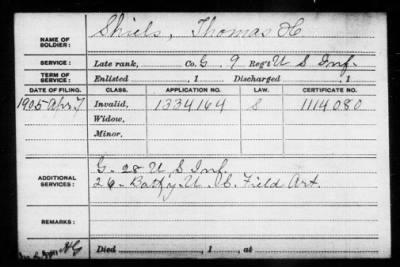 NAME OF SOLDIER: Shiels, Thomas H.
SERVICE: Late rank, Co. G, 9 Reg't U S Inf.
TERM OF SERVICE: Enlisted , 1 Discharged , 1
DATE OF FILING. CLASS. APPLICATION NO. LAW. CERTIFICATE NO.
1905 Apr. 7 Invalid, 1334164 S 1114080
Widow,
Minor,
ADDITIONAL SERVICES: G. 28 U S Inf.
26 - Batt'y U. S. Field Art.
REMARKS:
Died , 1 , at